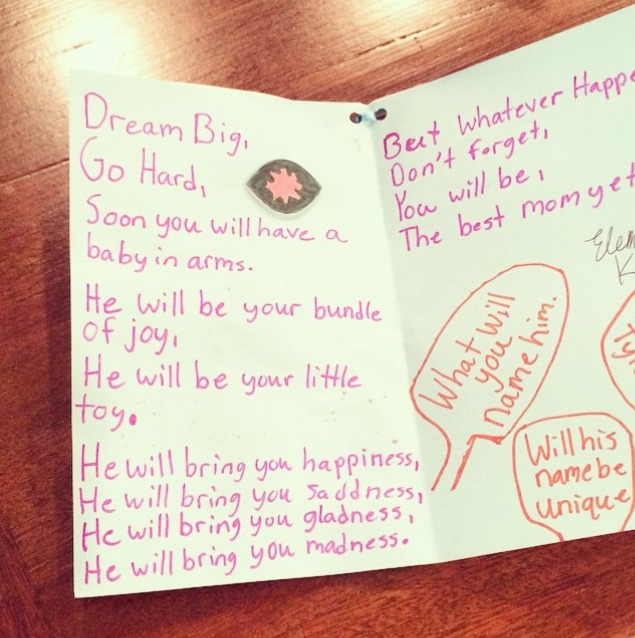 Dream Big,
Go Hard,
Soon you will have a
baby in arms.
He will be your bundle
of joy,
He will be your little
toy.
He will bring you happiness,
He will bring you saddness,
He will bring you gladness,
He will bring you madness.
But Whatever Happe
Don't forget,
You will be,
The best mom yet
What will
you
name him.
Will his
name be
unique